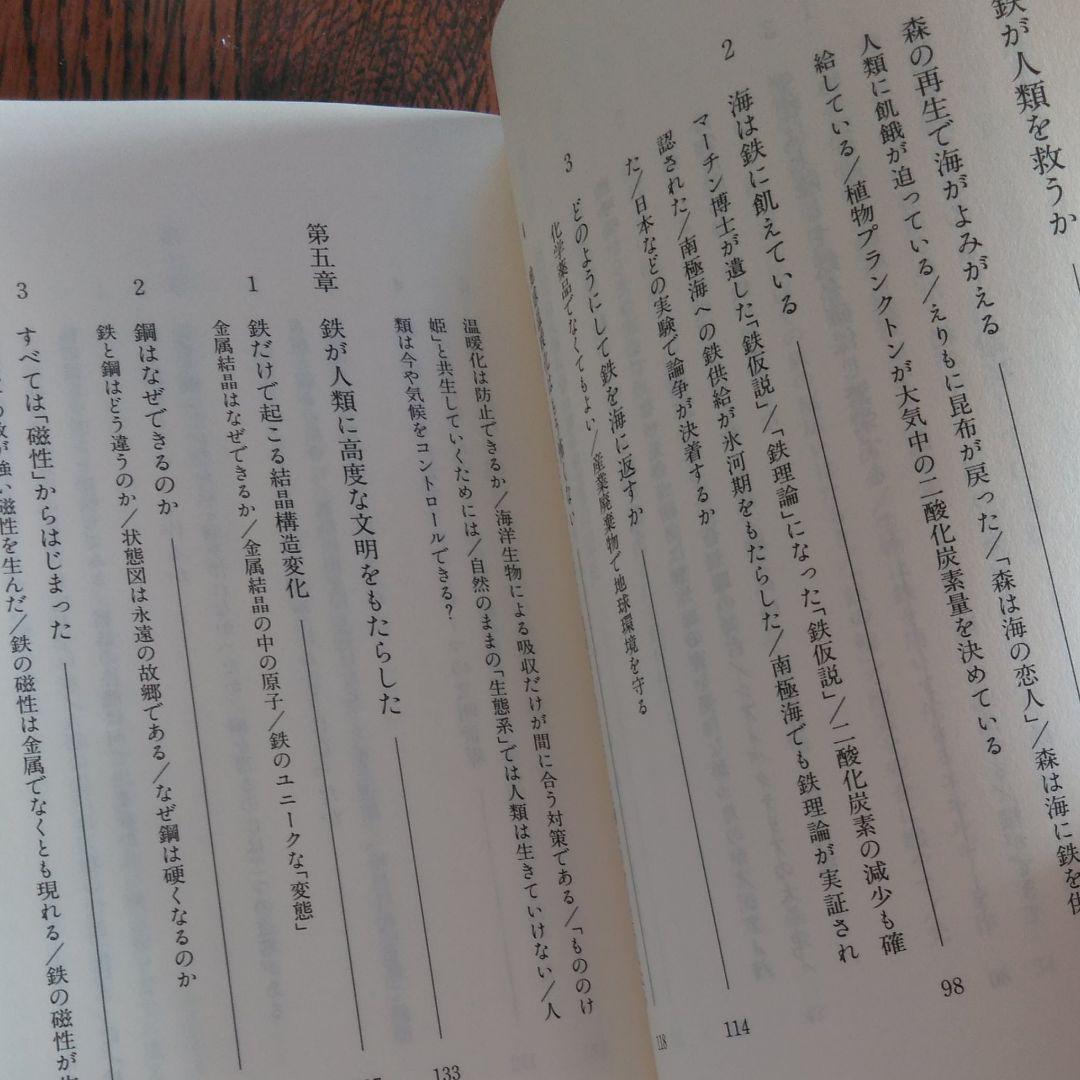 鉄が人類を救うか
森の再生で海がよみがえる 98
人類に飢餓が迫っている/えりもに昆布が戻った/「森は海の恋人」/森は海に鉄を供
給している/植物プランクトンが大気中の二酸化炭素量を決めている
2 海は鉄に飢えている 114
マーチン博士が遺した「鉄仮説」/「鉄理論」になった「鉄仮説」/二酸化炭素の減少も確
認された/南極海への鉄供給が氷河期をもたらした/南極海でも鉄理論が実証され
た/日本などの実験で論争が決着するか
3 どのようにして鉄を海に返すか 118
化学薬品でなくてもよい/産業廃棄物で地球環境を守る
温暖化は防止できるか/海洋生物による吸収だけが間に合う対策である/「もののけ
姫」と共生していくためには/自然のままの「生態系」では人類は生きていけない/人
類は今や気候をコントロールできる?
第五章 鉄が人類に高度な文明をもたらした 133
1 鉄だけで起こる結晶構造変化
金属結晶はなぜできるか/金属結晶の中の原子/鉄のユニークな「変態」
2 鋼はなぜできるのか
鉄と鋼はどう違うのか/状態図は永遠の故郷である/なぜ鋼は硬くなるのか
3 すべては「磁性」からはじまった
が強い磁性を生んだ/鉄の磁性は金属でなくとも現れる/鉄の磁性が